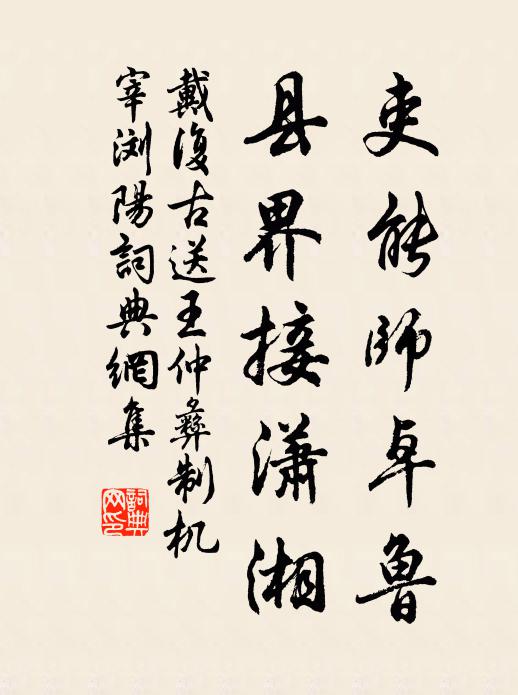 吏能师卓鲁
县界接潇湘
戴復古送王仲彝制机
宰浏陽詞典網集
詞典网印